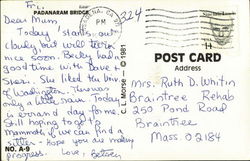 Fri.
PADANARAM BRIDGE
Dear Mum,
Today starts out
cloudy, but will turn
nice soon. Becky had
good time with Dave's
Sister. She liked the town
of Washington. Thomas
only a little rain. Today
is errand day home.
Still hoping to get to
Mammoth, if we can find a
sitter - Hope you are making
progress. Love, Betsey
NO. A-9
C. L. Morse - © 1981
224
POST CARD
Address
Mrs. Ruth D. Whitin
Braintree Rehab
250 Pond Road
Braintree
Mass 02184